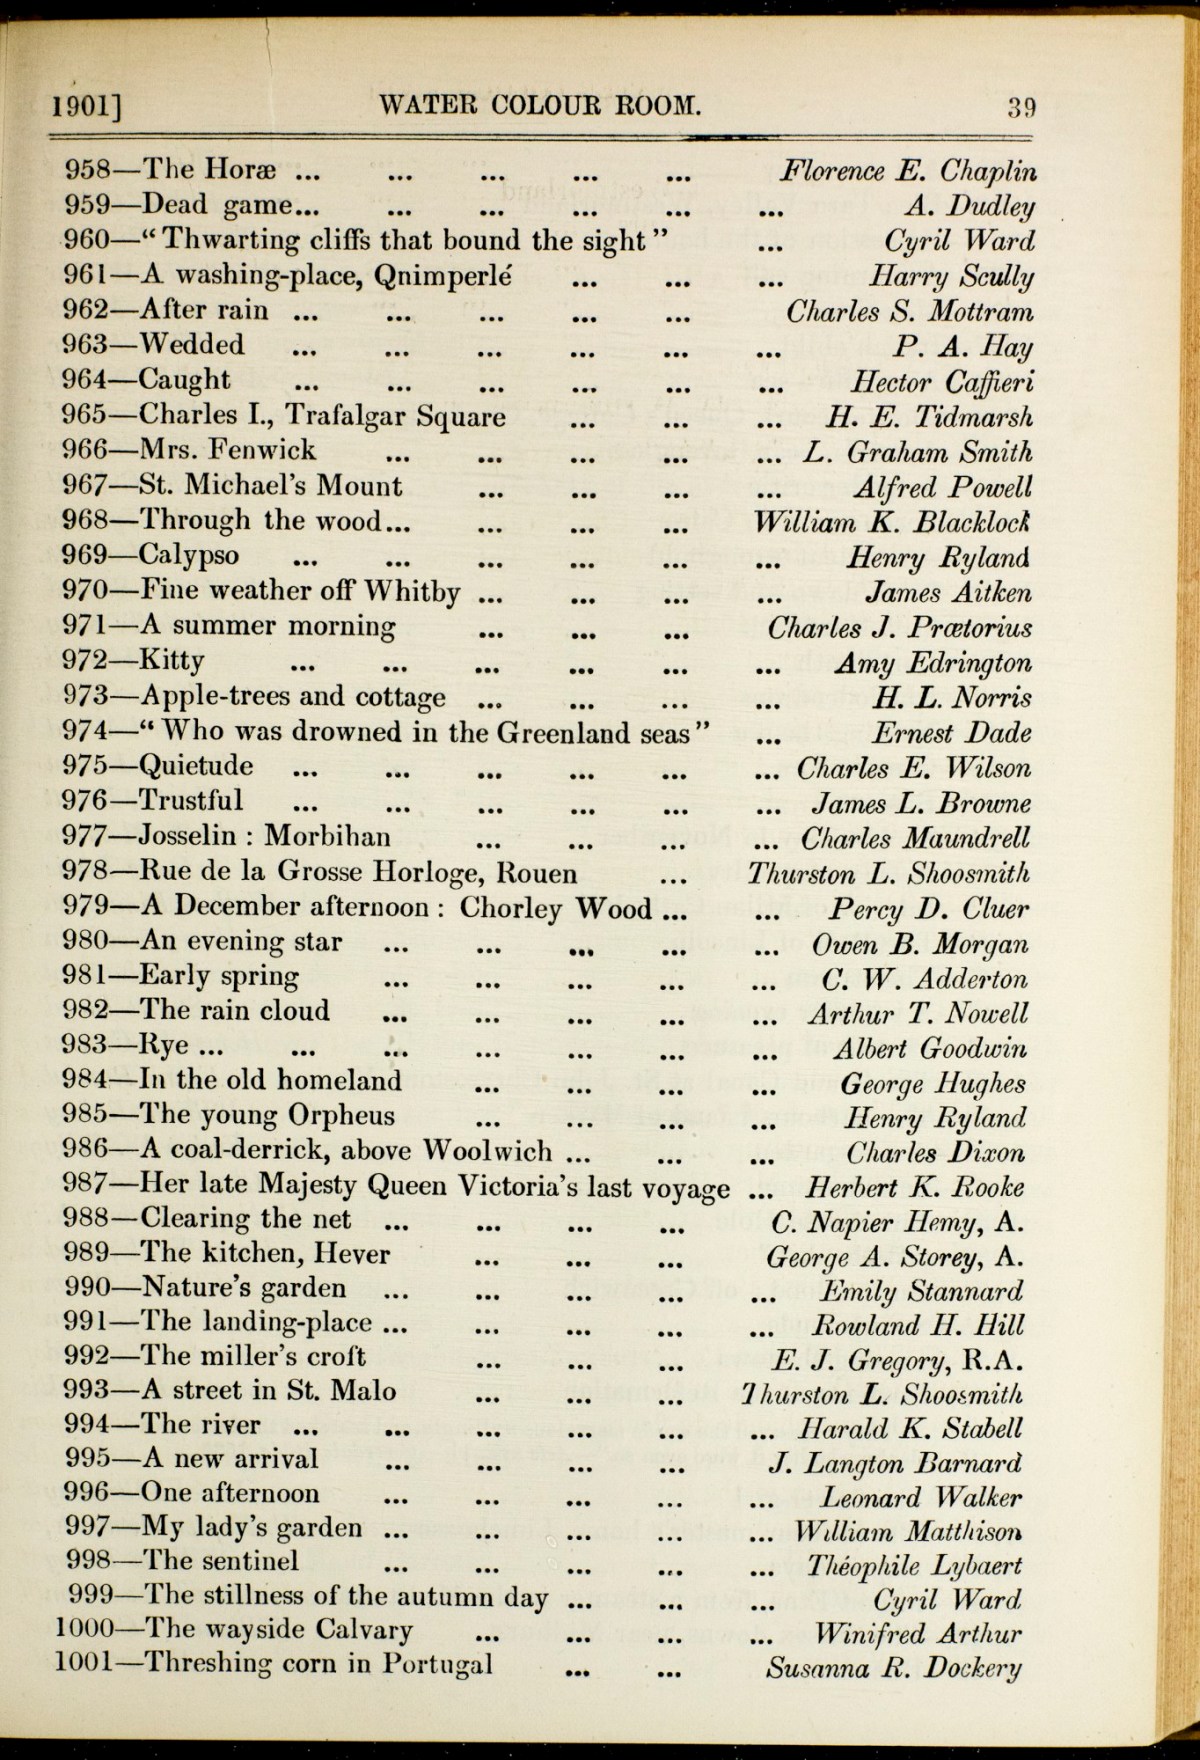 1901] WATER COLOUR ROOM. 39
958—The Horæ ... ... ... ... ... Florence E. Chaplin
959—Dead game... ... ... ... ... ... A. Dudley
960—“ Thwarting cliffs that bound the sight ” ... Cyril Ward
961—A washing-place, Qnimperlé ... ... ... Harry Scully
962—After rain ... ... ... ... ... Charles S. Mottram
963—Wedded ... ... ... ... ... ... P. A. Hay
964—Caught ... ... ... ... ... ... Hector Caffieri
965—Charles I., Trafalgar Square ... ... ... H. E. Tidmarsh
966—Mrs. Fenwick ... ... ... ... ... L. Graham Smith
967—St. Michael’s Mount ... ... ... ... Alfred Powell
968—Through the wood... ... ... ... William K. Blacklock
969—Calypso ... ... ... ... ... ... Henry Ryland
970—Fine weather off Whitby ... ... ... ... James Aitken
971—A summer morning ... ... ... Charles J. Prætorius
972—Kitty ... ... ... ... ... ... Amy Edrington
973—Apple-trees and cottage ... ... ... ... H. L. Norris
974—“ Who was drowned in the Greenland seas ” ... Ernest Dade
975—Quietude ... ... ... ... ... ... Charles E. Wilson
976—Trustful ... ... ... ... ... ... James L. Browne
977—Josselin : Morbihan ... ... ... ... Charles Maundrell
978—Rue de la Grosse Horloge, Rouen ... Thurston L. Shoosmith
979—A December afternoon : Chorley Wood ... ... Percy D. Cluer
980—An evening star ... ... ... ... ... Owen B. Morgan
981—Early spring ... ... ... ... ... C. W. Adderton
982—The rain cloud ... ... ... ... ... Arthur T. Nowell
983—Rye ... ... ... ... ... ... ... Albert Goodwin
984—In the old homeland ... ... ... ... George Hughes
985—The young Orpheus ... ... ... ... Henry Ryland
986—A coal-derrick, above Woolwich ... ... ... Charles Dixon
987—Her late Majesty Queen Victoria’s last voyage ... Herbert K. Rooke
988—Clearing the net ... ... ... ... C. Napier Hemy, A.
989—The kitchen, Hever ... ... ... George A. Storey, A.
990—Nature’s garden ... ... ... ... ... Emily Stannard
991—The landing-place ... ... ... ... ... Rowland H. Hill
992—The miller’s croft ... ... ... E. J. Gregory, R.A.
993—A street in St. Malo ... ... ... Thurston L. Shoosmith
994—The river ... ... ... ... ... ... Harald K. Stabell
995—A new arrival ... ... ... ... J. Langton Barnard
996—One afternoon ... ... ... ... ... Leonard Walker
997—My lady’s garden ... ... ... ... ... William Matthison
998—The sentinel ... ... ... ... ... Théophile Lybaert
999—The stillness of the autumn day ... ... ... Cyril Ward
1000—The wayside Calvary ... ... ... ... Winifred Arthur
1001—Threshing corn in Portugal ... ... Susanna R. Dockery